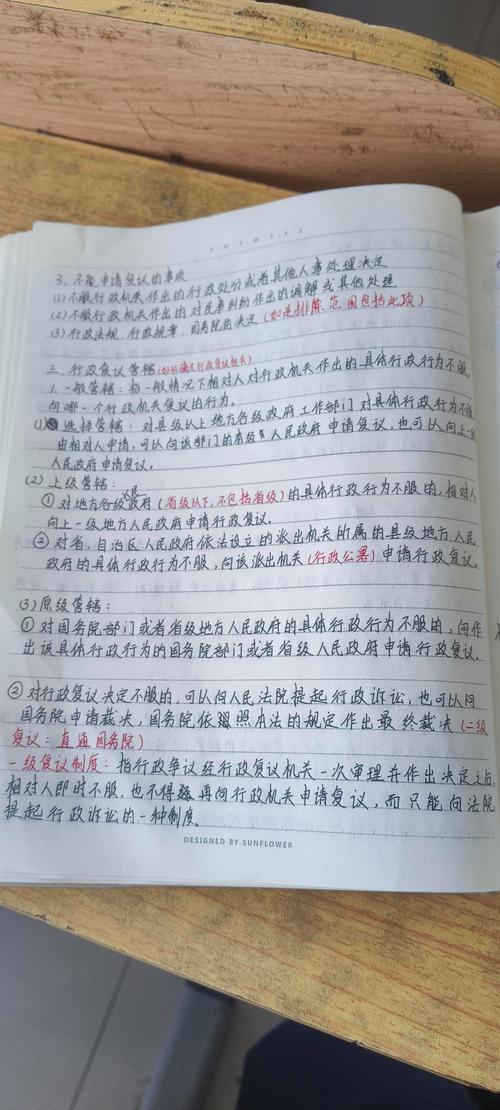 3. 不能申请复议的事项
(1) 不服行政机关作出的行政处分或者其他人事处理决定
(2) 不服行政机关作出的对民事纠纷作出的调解或其他处理
(3) 行政法规、行政规章、国务院的决定 (如是排除范围包括此项)
三、行政复议管辖 (如何确定行政复议机关)
1. 一般管辖：指一般情况下相对人对行政机关作出的具体行政行为不服,
向哪一个行政机关复议的行为。
(1) 选择管辖：对县级以上地方各级政府工作部门对具体行政行为不服
由相对人申请,可以向该部门的本级人民政府申请复议,也可以向上一级
人民政府申请复议。
(2) 上级管辖：
① 对地方各级人民政府 (省级以下,不包括省级) 的具体行政行为不服的,相对人
向上一级地方人民政府申请行政复议。
② 对省、自治区人民政府依法设立的派出机关所属的县级地方人民
政府的具体行政行为不服,向该派出机关 (行政公署) 申请行政复议。
(3) 原级管辖：
① 对国务院部门或者省级地方人民政府的具体行政行为不服的,向作
出该具体行政行为的国务院部门或者省级人民政府申请行政复议。
② 对行政复议决定不服的,可以向人民法院提起行政诉讼,也可以向
国务院申请裁决,国务院依照本法的规定作出最终裁决 (二级
复议：直通国务院)
一级复议制度：指行政争议经行政复议机关一次审理并作出决定之后,
相对人即时不服,也不得再向行政机关申请复议,而只能向法院
提起行政诉讼的一种制度。
DESIGNED BY SUNFLOWER